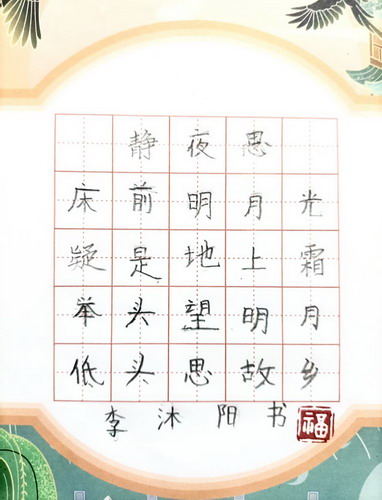 静夜思
床前明月光
疑是地上霜
举头望明月
低头思故乡
李沐阳书
福